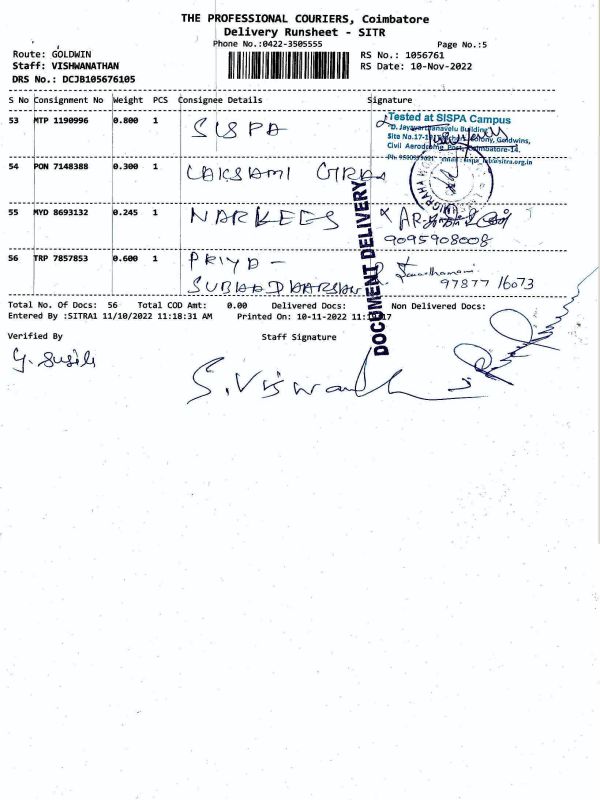 THE PROFESSIONAL COURIERS, Coimbatore
Delivery Runsheet - SITR
Phone No.:0422-3505555 Page No.:5
Route: GOLDWIN RS No.: 1056761
Staff: VISHWANATHAN RS Date: 10-Nov-2022
DRS No.: DCJB105676105
S No Consignment No Weight PCS Consignee Details Signature
53 MTP 1190996 0.800 1 SISPA
Tested at SISPA Campus
Civil Aerodrome Post, Coimbatore-14.
54 PON 7148388 0.300 1 LAKSHMI
55 MYD 8693132 0.245 1 NARKEES
9095908008
56 TRP 7857853 0.600 1 PRIYA -
97877 16073
DOCUMENT DELIVERY
Total No. Of Docs: 56 Total COD Amt: 0.00 Delivered Docs: Non Delivered Docs:
Entered By :SITRA1 11/10/2022 11:18:31 AM Printed On: 10-11-2022
Verified By Staff Signature